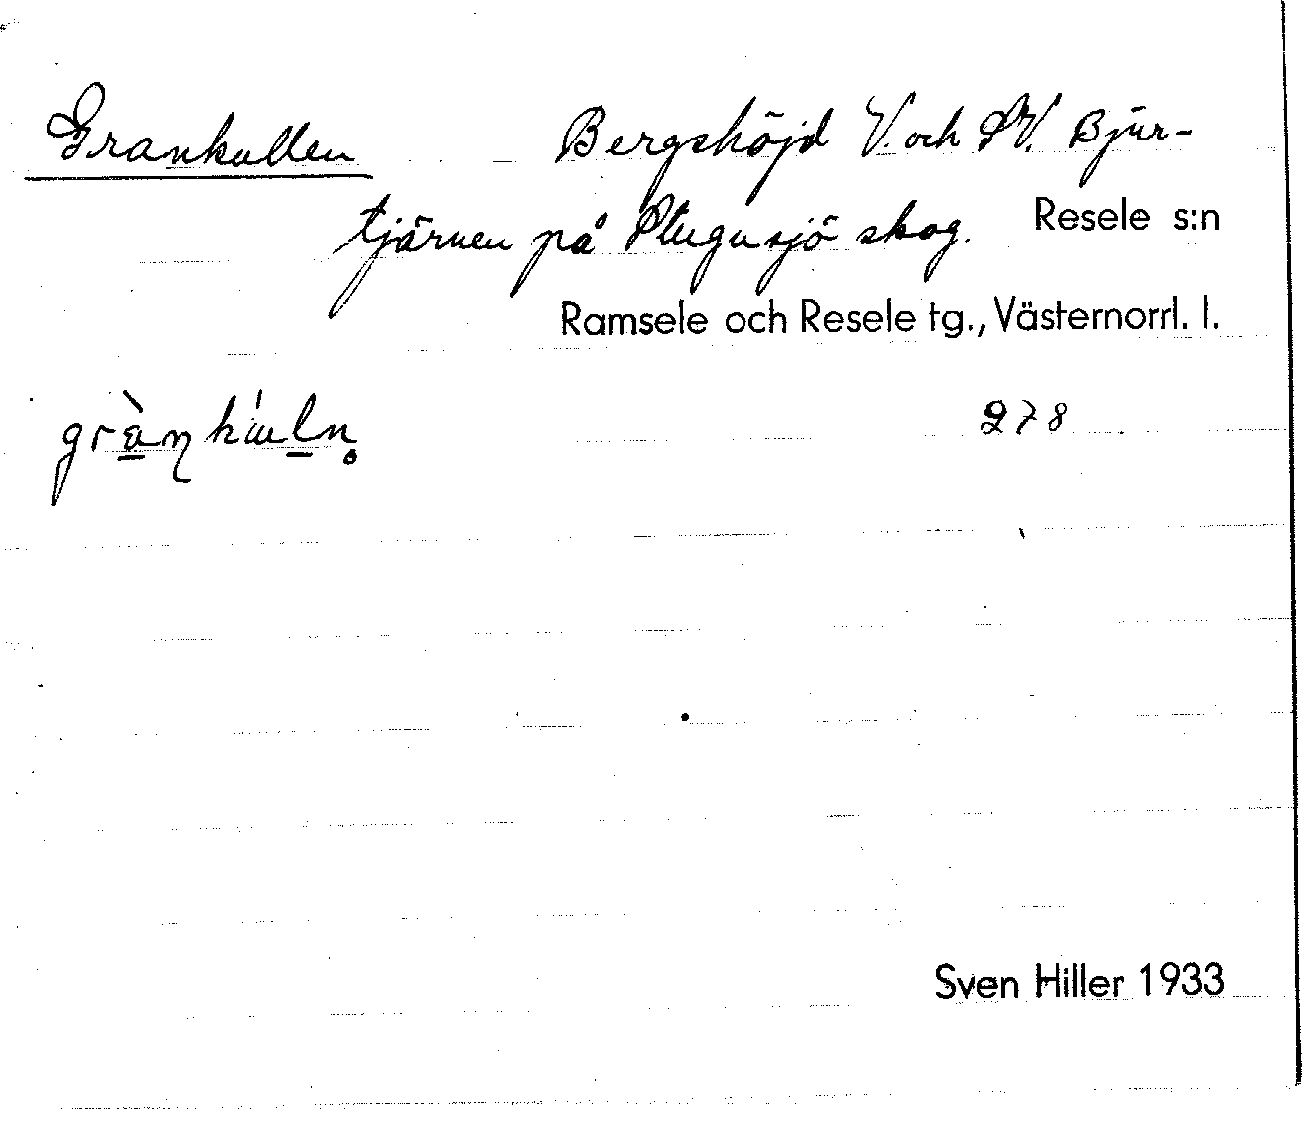 Grankullen Bergshöjd V. och SV. Bjur-
tjärnen på Plugusjö skog. Resele s:n
Ramsele och Resele tg., Västernorrl. l.
278
Sven Hiller 1933